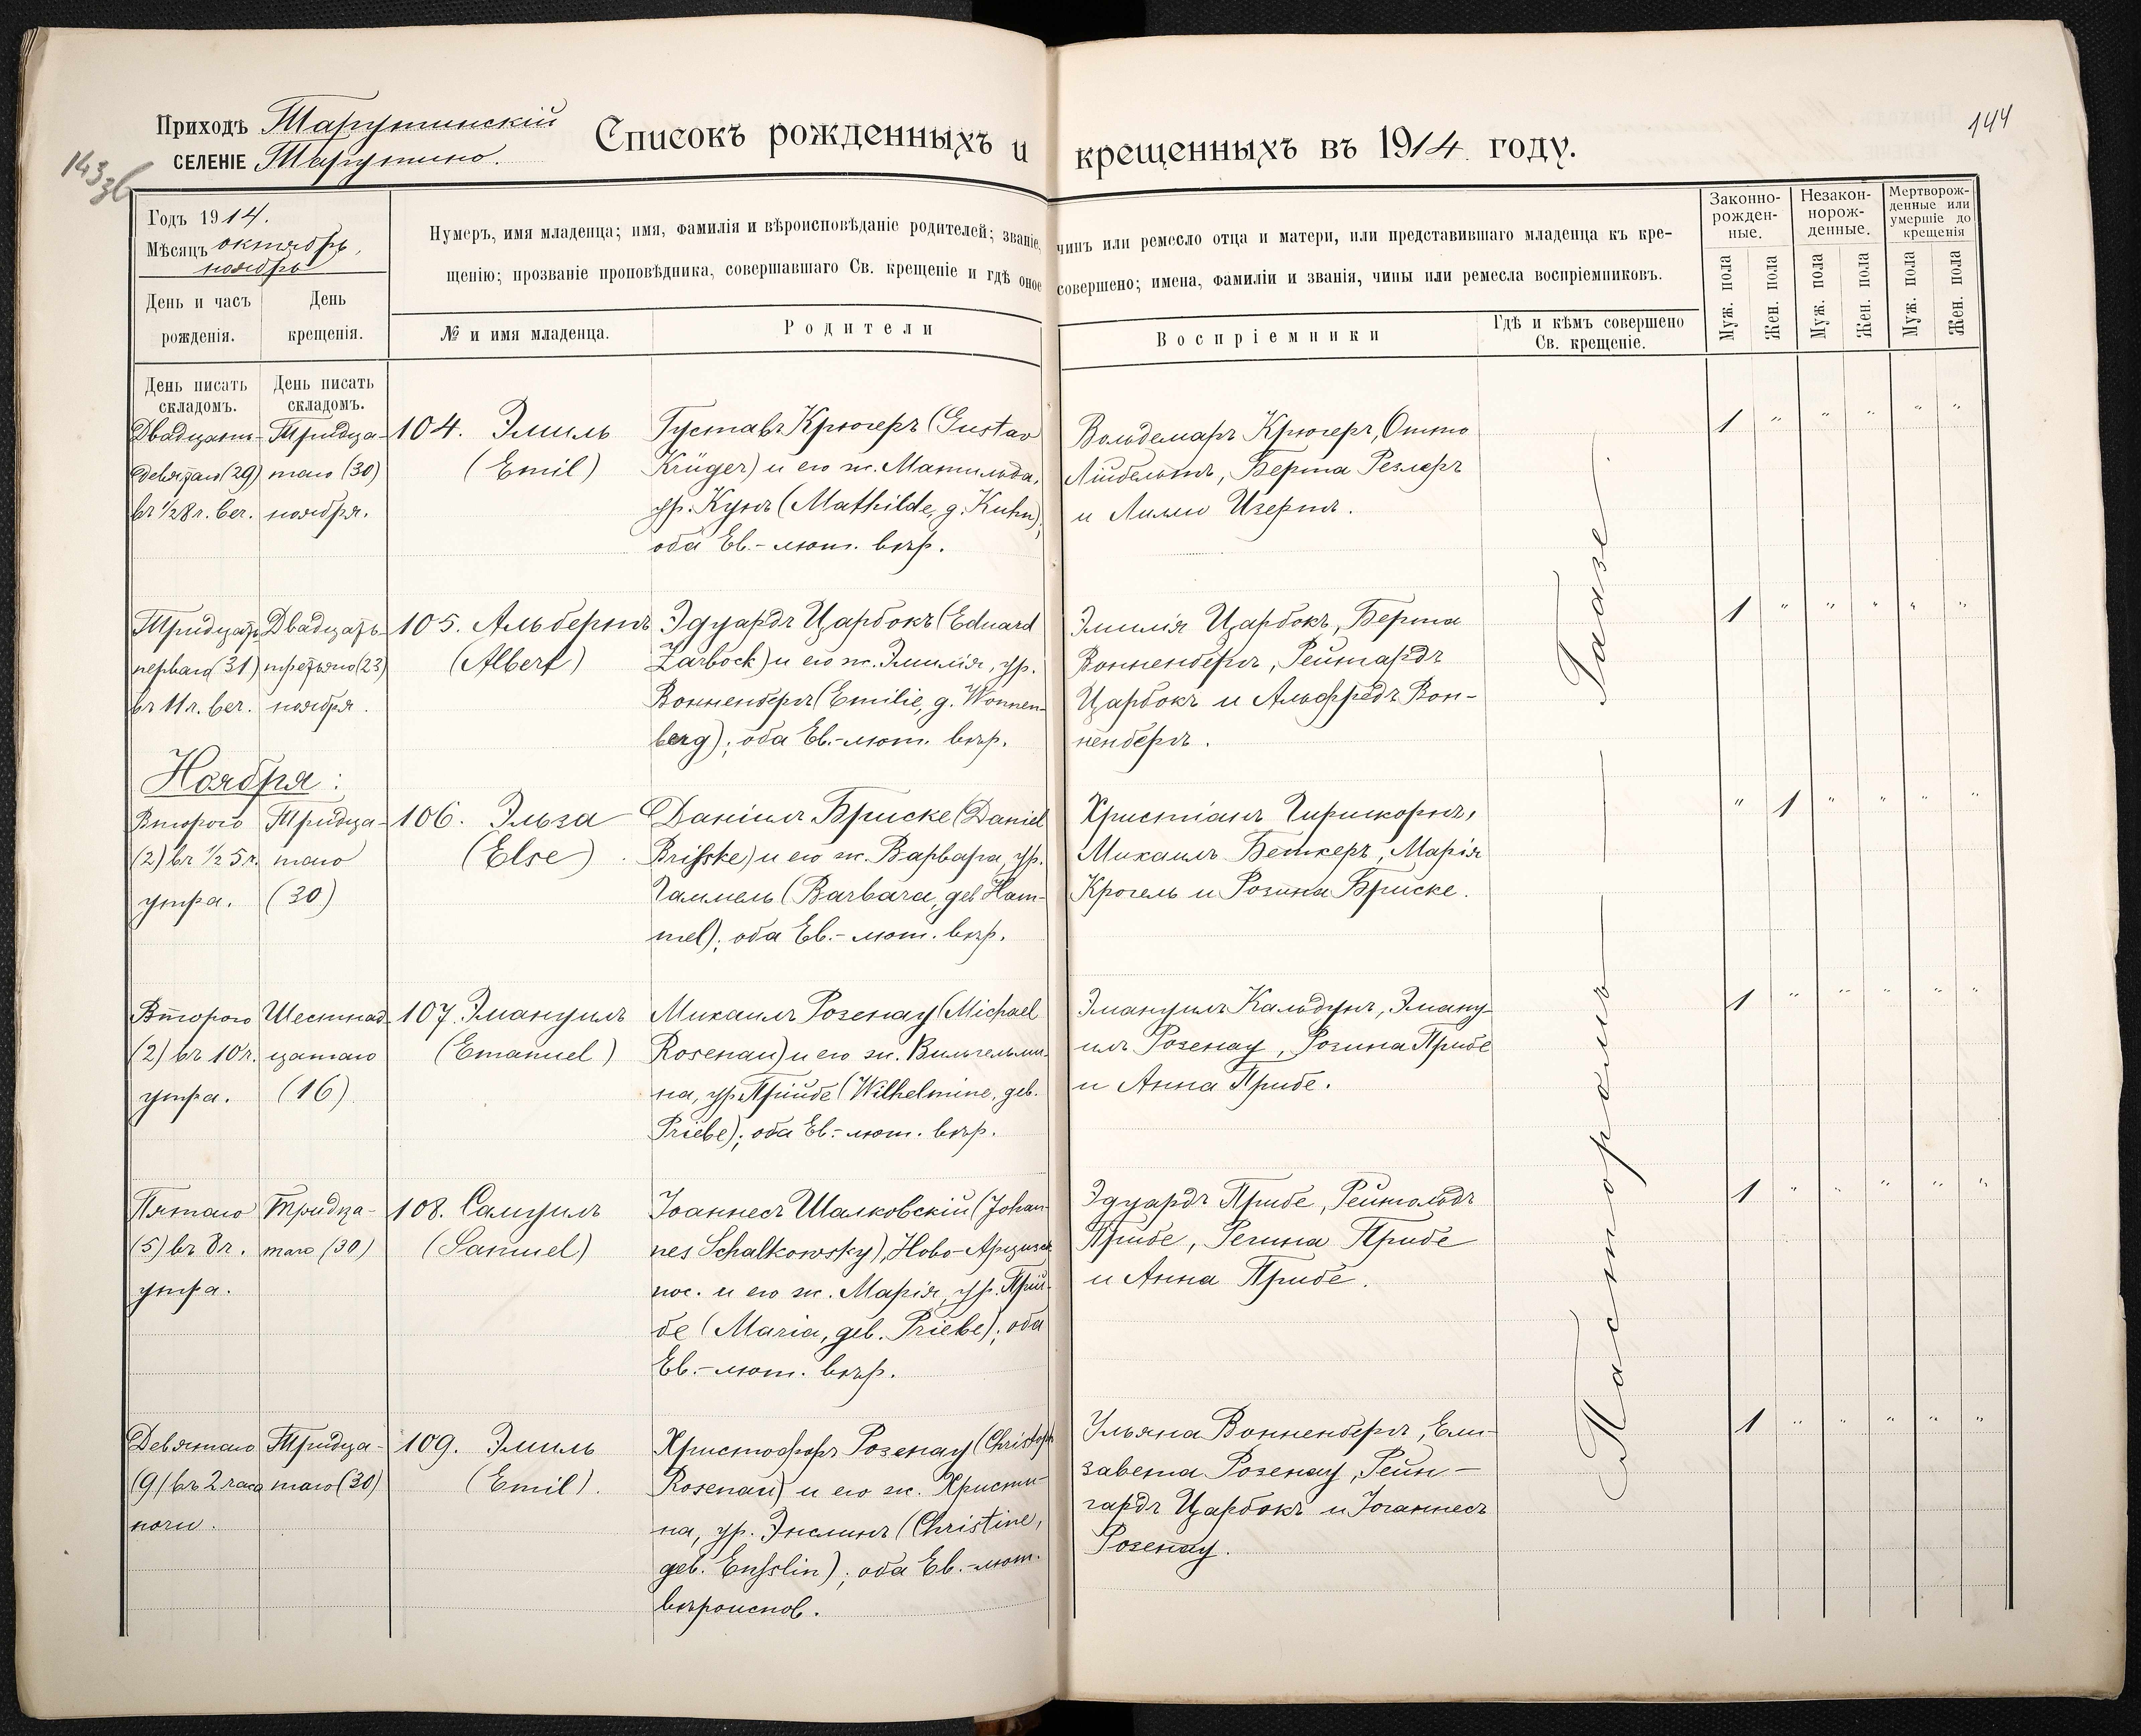 Приходъ Тарутинскій
СЕЛЕНІЕ Тарутино.
Списокъ рожденныхъ и крещенныхъ въ 1914 году.
144
143 зб
Годъ 1914.
Мѣсяцъ октябрь,
ноябрь
День и часъ рожденія.
День крещенія.
Нумеръ, имя младенца; имя, фамилія и вѣроисповѣданіе родителей; званіе, чинъ или ремесло отца и матери, или представившаго младенца къ кре-
щенію; прозваніе проповѣдника, совершавшаго Св. крещеніе и гдѣ оное совершено; имена, фамиліи и званія, чины или ремесла воспріемниковъ.
№ и имя младенца.
Родители
Воспріемники
Гдѣ и кѣмъ совершено
Св. крещеніе.
Законно-
рожден-
ные.
Незакон-
норож-
денные.
Мертворож-
денные или
умершіе до
крещенія
Муж. пола
Жен. пола
Муж. пола
Жен. пола
Муж. пола
Жен. пола
День писать
складомъ.
День писать
складомъ.
Двадцать-
девятаго (29)
въ ½8 ч. веч.
Тридца-
таго (30)
ноября.
104. Эмиль
(Emil)
Густавъ Крюгеръ (Gustav
Krüger) и его ж. Матильда,
ур. Кунъ (Mathilde, g. Kuhn);
оба Ев.-лют. вѣр.
Вольдемаръ Крюгеръ, Отто
Лійбельтъ, Берта Резлеръ
и Лилли Изертъ.
1 " " " " "
Тридцать
перваго (31)
въ 11 ч. веч.
Двадцать
третьяго (23)
ноября.
105. Альбертъ
(Albert)
Эдуардъ Царбокъ (Eduard
Zarbock) и его ж. Эмилія, ур.
Вонненбергъ (Emilie, g. Wonnen-
berg); оба Ев.-лют. вѣр.
Эмилія Царбокъ, Берта
Вонненбергъ, Рейнгардъ
Царбокъ и Альфредъ Вон-
ненбергъ.
1 " " " " "
Ноября:
Второго
(2) въ ½ 5 ч.
утра.
Тридца-
таго
(30)
106. Эльза
(Else)
Даніилъ Бриске (Daniel
Brisske) и его ж. Варвара, ур.
Гаммель (Barbara, geb Ham-
mel); оба Ев.-лют. вѣр.
Христіанъ Гиршкорнъ,
Михаилъ Беткеръ, Марія
Крогель и Розина Бриске.
" 1 " " " "
Второго
(2) въ 10 ч.
утра.
Шестнад-
цатаго
(16)
107. Эмануилъ
(Emanuel)
Михаилъ Розенау (Michael
Rosenau) и его ж. Вильгельми-
на, ур. Прийбе (Wilhelmine, geb.
Priebe); оба Ев.-лют. вѣр.
Эмануилъ Кальдунъ, Эману-
илъ Розенау, Розина Прибе
и Анна Прибе.
1 " " " " "
Пятаго
(5) въ 8 ч.
утра.
Тридца-
таго (30)
108. Самуилъ
(Samuel)
Іоаннесъ Шалковскій (Johan-
nes Schalkowsky), Ново-Арцизск.
пос. и его ж. Марія, ур. Прий-
бе (Maria, geb. Priebe); оба
Ев.-лют. вѣр.
Эдуардъ Прибе, Рейнгольдъ
Прибе, Регина Прибе
и Анна Прибе.
1 " " " " "
Девятаго
(9) въ 2 часа
ночи.
Тридца-
таго (30)
109. Эмиль
(Emil).
Христофоръ Розенау (Christoph
Rosenau) и его ж. Христи-
на, ур. Энслинъ (Christine,
geb. Ensslin); оба Ев.-лют.
вѣроиспов.
Ульяна Вонненбергъ, Ели-
завета Розенау, Рейн-
гардъ Царбокъ и Іоганнесъ
Розенау.
1 " " " " "
Пасторомъ — Гаазе